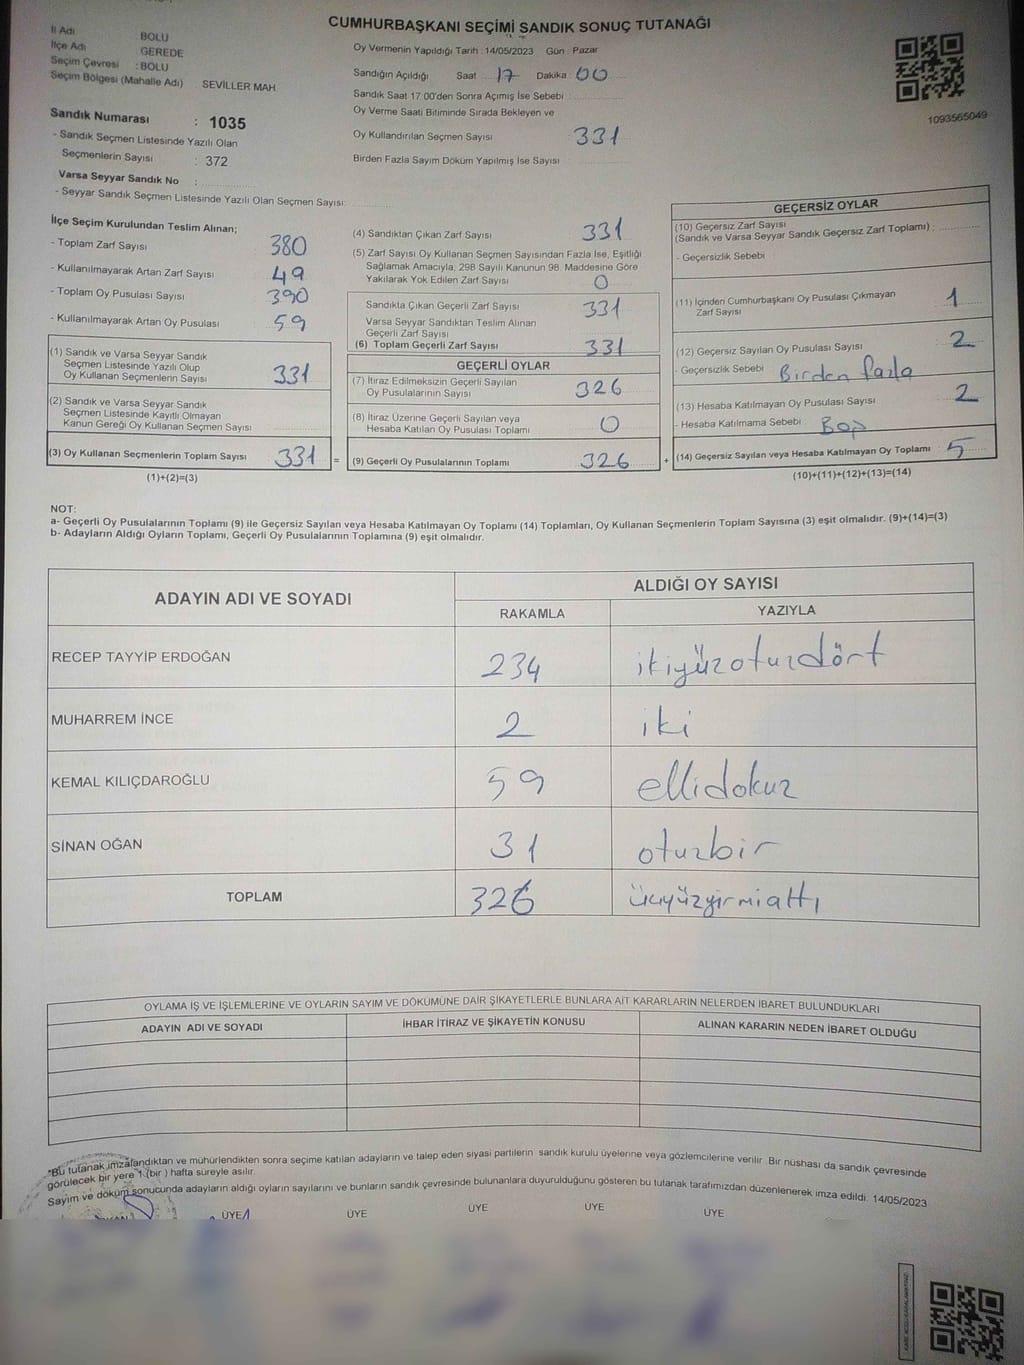 CUMHURBAŞKANI SEÇİMİ SANDIK SONUÇ TUTANAĞI
İl Adı BOLU
İlçe Adı GEREDE
Seçim Çevresi : BOLU
Seçim Bölgesi (Mahalle Adı) SEVİLLER MAH.
Oy Vermenin Yapıldığı Tarih : 14/05/2023 Gün : Pazar
Sandığın Açıldığı Saat 17 Dakika 00
Sandık Saat 17:00'den Sonra Açımış İse Sebebi :
Oy Verme Saati Bitiminde Sırada Bekleyen ve
Oy Kullandırılan Seçmen Sayısı 331
Birden Fazla Sayım Döküm Yapılmış İse Sayısı
1093565049
Sandık Numarası : 1035
- Sandık Seçmen Listesinde Yazılı Olan
Seçmenlerin Sayısı : 372
Varsa Seyyar Sandık No :
- Seyyar Sandık Seçmen Listesinde Yazılı Olan Seçmen Sayısı:
İlçe Seçim Kurulundan Teslim Alınan;
- Toplam Zarf Sayısı 380
- Kullanılmayarak Artan Zarf Sayısı 49
- Toplam Oy Pusulası Sayısı 390
- Kullanılmayarak Artan Oy Pusulası 59
(1) Sandık ve Varsa Seyyar Sandık
Seçmen Listesinde Yazılı Olup
Oy Kullanan Seçmenlerin Sayısı 331
(2) Sandık ve Varsa Seyyar Sandık
Seçmen Listesinde Kayıtlı Olmayan
Kanun Gereği Oy Kullanan Seçmen Sayısı
(3) Oy Kullanan Seçmenlerin Toplam Sayısı 331 =
(1)+(2)=(3)
(4) Sandıktan Çıkan Zarf Sayısı 331
(5) Zarf Sayısı Oy Kullanan Seçmen Sayısından Fazla İse, Eşitliği
Sağlamak Amacıyla; 298 Sayılı Kanunun 98. Maddesine Göre
Yakılarak Yok Edilen Zarf Sayısı 0
Sandıkta Çıkan Geçerli Zarf Sayısı 331
Varsa Seyyar Sandıktan Teslim Alınan
Geçerli Zarf Sayısı
(6) Toplam Geçerli Zarf Sayısı 331
GEÇERLİ OYLAR
(7) İtiraz Edilmeksizin Geçerli Sayılan
Oy Pusulalarının Sayısı 326
(8) İtiraz Üzerine Geçerli Sayılan veya
Hesaba Katılan Oy Pusulası Toplamı 0
(9) Geçerli Oy Pusulalarının Toplamı 326 +
GEÇERSİZ OYLAR
(10) Geçersiz Zarf Sayısı
(Sandık ve Varsa Seyyar Sandık Geçersiz Zarf Toplamı) :
- Geçersizlik Sebebi
(11) İçinden Cumhurbaşkanı Oy Pusulası Çıkmayan
Zarf Sayısı 1
(12) Geçersiz Sayılan Oy Pusulası Sayısı 2
- Geçersizlik Sebebi Birden fazla
(13) Hesaba Katılmayan Oy Pusulası Sayısı 2
- Hesaba Katılmama Sebebi
(14) Geçersiz Sayılan veya Hesaba Katılmayan Oy Toplamı 5
(10)+(11)+(12)+(13)=(14)
NOT:
a- Geçerli Oy Pusulalarının Toplamı (9) ile Geçersiz Sayılan veya Hesaba Katılmayan Oy Toplamı (14) Toplamları, Oy Kullanan Seçmenlerin Toplam Sayısına (3) eşit olmalıdır. (9)+(14)=(3)
b- Adayların Aldığı Oyların Toplamı, Geçerli Oy Pusulalarının Toplamına (9) eşit olmalıdır.
ADAYIN ADI VE SOYADI ALDIĞI OY SAYISI
RAKAMLA YAZIYLA
RECEP TAYYİP ERDOĞAN 234 ikiyüzotuzdört
MUHARREM İNCE 2 iki
KEMAL KILIÇDAROĞLU 59 ellidokuz
SİNAN OĞAN 31 otuzbir
TOPLAM 326 üçyüzyirmialtı
OYLAMA İŞ VE İŞLEMLERİNE VE OYLARIN SAYIM VE DÖKÜMÜNE DAİR ŞİKAYETLERLE BUNLARA AİT KARARLARIN NELERDEN İBARET BULUNDUKLARI
ADAYIN ADI VE SOYADI İHBAR İTİRAZ VE ŞİKAYETİN KONUSU ALINAN KARARIN NEDEN İBARET OLDUĞU
*Bu tutanak imzalandıktan ve mühürlendikten sonra seçime katılan adayların ve talep eden siyasi partilerin sandık kurulu üyelerine veya gözlemcilerine verilir. Bir nüshası da sandık çevresinde
görülecek bir yere 1 (bir ) hafta süreyle asılır.
Sayım ve döküm sonucunda adayların aldığı oyların sayılarını ve bunların sandık çevresinde bulunanlara duyurulduğunu gösteren bu tutanak tarafımızdan düzenlenerek imza edildi. 14/05/2023
ÜYE ÜYE ÜYE ÜYE ÜYE